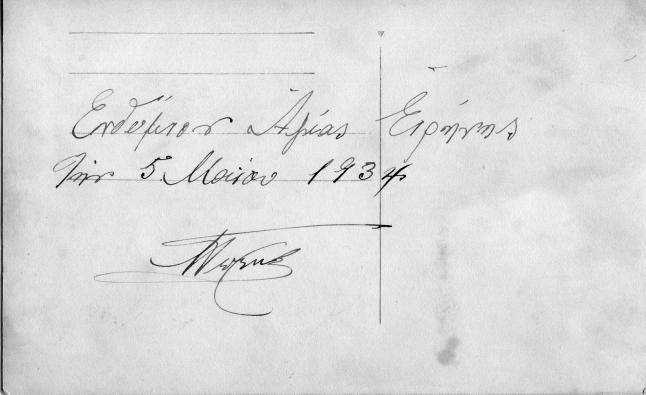 Ενθύμιον Αγίας Ειρήνης
την 5 Μαΐου 1934